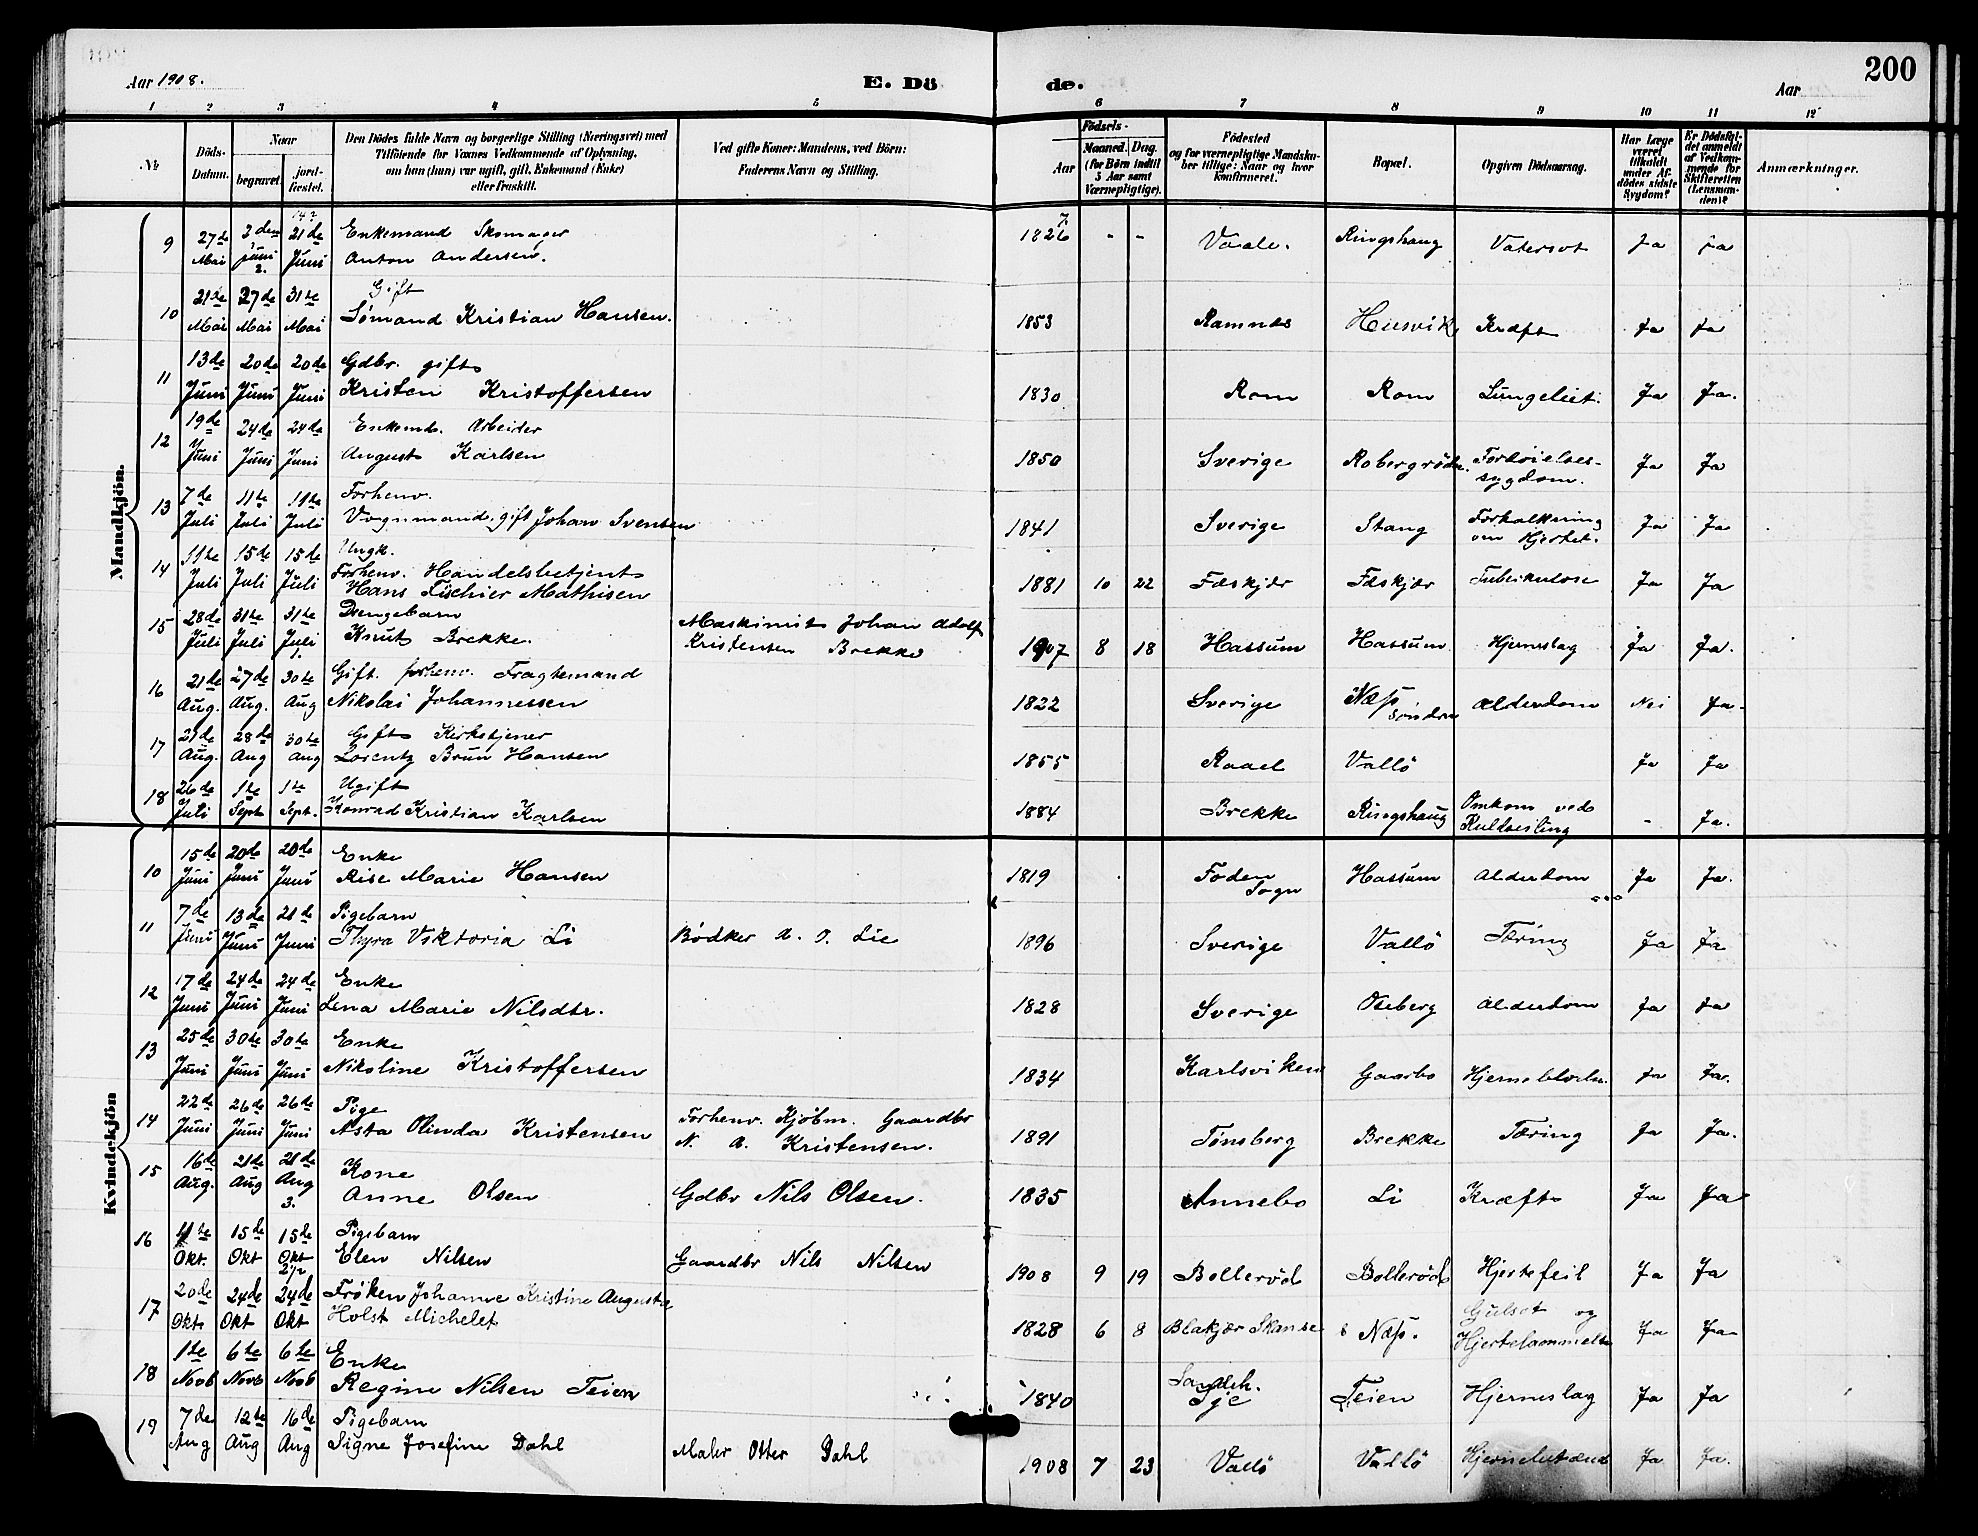 200
Aar 1908. E. Dö de. Aar
1 2 3 4 5 6 7 8 9 10 11 12
№
Döds-Datum.
Naar
begravet
jordfæstet.
Den Dödes fulde Navn og borgerlige Stilling (Næringsvei) med
Tilföiende for Voxnes Vedkommende af Oplysning,
om han (hun) var ugift, gift, Enkemand (Enke)
eller fraskilt.
Ved gifte Koner: Mandens, ved Börn:
Faderens Navn og Stilling.
Födsels-
Aar
Maaned. Dag.
(for Börn indtil
5 Aar samt
Værnepligtige).
Födested
og for værnepligtige Mandska-
ber tillige: Naar og hvor
konfirmeret.
Bopæl.
Opgiven Dödsaarsag.
Har Læge
været
tilkaldt
under Af-
dödes sidste
Sygdom?
Er Dödsfal-
det anmeldt
af Vedkom-
mende for
Skifteretten
(Lensman-
den)?
Anmærkninger.
Mandkjön.
9 27de Mai 2den Juni 21de Juni Enkemand Skomager
Anton Andersen. 1826 - - Vaale. Ringshaug Vatersot Ja Ja
10 21de Mai 27de Mai 31te Mai Gift
Sømand Kristian Hansen. 1853 Ramnæs Husvik Kræft Ja Ja
11 13de Juni 20de Juni 20de Juni Gdbr. gift
Kristen Kristoffersen 1830 Rom Rom Ja Ja.
12 19de Juni 24de Juni 24de Juni Enkemd. Arbeider
August Karlsen 1850 Sverige Fordøielses-
sygdom. Ja Ja
13 7de Juli 11te Juli 11te Juli Forhenv.
Vognmand, gift Johan Svensen 1841 Sverige Stang Forkalkning
om Hjertet. Ja Ja
14 11te Juli 15de Juli 15de Juli Ungk.
Forhenv. Handelsbetjent
Hans Fischier Mathisen 1881 10 22 Fæskjær Fæskjær Tuberkulose Ja Ja
15 28de Juli 31te Juli 31te Juli Drengebarn
Knut Brekke. Maskinist Johan Adolf
Kristensen Brekke 1907 8 18 Hassum Hassum Hjerneslag Ja Ja.
16 21de Aug. 27de Aug. 30te Aug Gift. forhenv. Fragtemand
Nikolai Johannessen 1822 Sverige Næss
søndre Alderdom Nei Ja.
17 21de Aug. 28de Aug 30te Aug Gift Kirketjener
Lorentz Brun Hansen 1855 Raael Vallö Ja Ja
18 26de Juli 1te Sept 1te Sept. Ugift
Konrad Kristian Karlsen 1884 Brekke Ringshaug Omkom ved
Kulseiling - Ja.
Kvindekjön
10 15de Juni 20de Juni 20de Juni Enke
Rise Marie Hansen 1819 Foden
Sogn Hassum Alderdom Ja Ja.
11 7de Juni 13de Juni 21de Juni Pigebarn
Thyra Viktoria Li Bødker A. O. Lie 1896 Sverige Vallö Tæring Ja Ja
12 17de Juni 24de Juni 24de Juni Enke
Lena Marie Nilsdtr. 1828 Sverige Oseberg Alderdom Ja Ja
13 25de Juni 30te Juni 30te Juni Enke
Nikoline Kristoffersen 1834 Karlsviken Gaarbo Hjerneblødn. Ja Ja.
14 22de Juni 26de Juni 26de Juni Pige
Asta Olinda Kristensen Forhenv. Kjøbm. Gaardbr
N. A. Kristensen. 1891 Tønsberg Brekke Tæring Ja Ja.
15 16de Aug. 21de Aug 21de Aug Kone
3. Anne Olsen Gdbr Nils Olsen. 1835 Annebo Li Kræft Ja Ja
16 11te Okt. 15de Okt 15de Okt Pigebarn
Elen Nilsen Gaardbr Nils Nilsen 1908 9 19 Bolleröd Bolleröd Hjertefeil Ja Ja
17 20de Okt. 24de Okt 24de Okt Frøken Johanne Kristine Augusta
Holst Michelet 1828 6 8 Blakjær Skanse Næss. Gulsot og
Hjertelammelse Ja Ja
18 1te Novb 6te Novb 6te Novb Enke
Regine Nilsen Teien 1840 Sandeh.
Teien Hjerneslag Ja Ja
19 7de Aug 12te Aug 16de Aug Pigebarn
Signe Josefine Dahl Maler Otter Dahl 1908 7 23 Vallö Vallö Ja Ja.